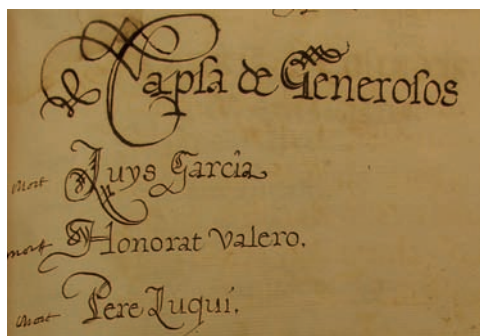 Capsa de Generosos
mort Luys Garcia
mort Honorat Valero.
mort Pere Luqui.